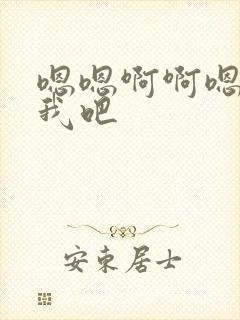 嗯嗯啊啊嗯
我吧
安东居士